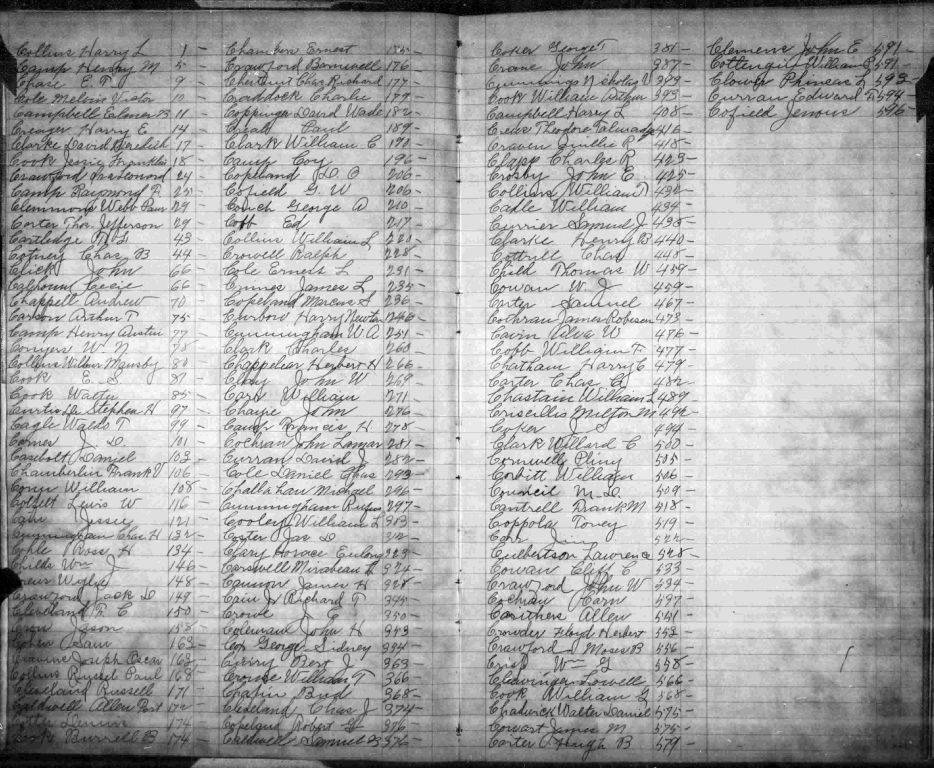 Collins Harry L 1 -
Camp Henry M 5 -
Chase E. T. 9 -
Cole Melvin Victor 10 -
Campbell Elmer B 11 -
Creager Harry E 14 -
Clarke David Meredith 17 -
Cook Jessie Franklin 18 -
Crawford Ira Leonord 24 -
Camp Raymond F. 25 -
Clemmons Webb Paul 29 -
Carter Thos. Jefferson 29 -
Cartledge 43 -
Cofney Chas B 44 -
Click John 66 -
Calhoun Cecie 66 -
Chappell Andrew 70 -
Carson Arthur T 75 -
Camp Henry Austin 77 -
Conyers W. N. 78 -
Collins Wilbur Mansby 80 -
Cook E. S. 87 -
Cook Walter 85 -
Curtis Stephen H 97 -
Cagle Waldo T 99 -
Comer J. D. 101 -
Casebolt Daniel 103 -
Chamberlin Frank V 106 -
William 108 -
Corbitt Lewis W 116 -
Jessie 121 -
Cunningham Chas H 132 -
Ross H 134 -
Childs Wm J 146 -
148 -
Crawford Jack D 149 -
Cleveland F. C 150 -
Jason 158 -
Sam 163 -
Joseph Oscar 163 -
Collins Russel Paul 168 -
Cleveland Russell 171 -
Caldwell Allen Port 172 -
174 -
Cook Burrell B 174 -
Chambers Ernest
Crawford Barnwell 176 -
Chestnut Chas Richard 177 -
Craddock Charlie 177 -
Coppenger David Wade 182 -
Paul 189 -
Clark William C 190 -
Camp Coy 196 -
Copeland D. O 206 -
Cofield G. W 206 -
Couch George A 210 -
Cobb Ed 217 -
Collins William L 220 -
Crowell Ralph 228 -
Cole Ernest L 231 -
James L 235 -
Copeland Marcus S 236 -
Curbow Harry Newton 246 -
Cunningham W. A 251 -
Clark Charles 260 -
Chappelear Herbert H 266 -
Clay John W 269 -
Carr William 271 -
John 276 -
Camp Francis H 278 -
Cochran John Lamar 281 -
Curran David J 282 -
Cole Daniel 293 -
Callahan Michael 296 -
Cunningham Rufus 297 -
Cooley William L 303 -
Coster Jas D 312 -
Clary Horace 323 -
Carswell Mirabeau 324 -
Cannon James H 328 -
Cain Jr Richard T 345 -
Crowe J. E. 350 -
Coleman John H 353 -
Cox George Sidney 354 -
Curry Bert J 363 -
Crouse William T 366 -
Chafin Bud 368 -
Cleveland Chas J 374 -
Copeland Robert 376 -
Caldwell Samuel 376 -
Coker George T 381 -
Crane John 387 -
Cummings Nicholas V 393 -
Cook William Arthur 393 -
Campbell Harry L 408 -
Crews Theodore Talmadge 416 -
Craven R 418 -
Clapp Charles R 423 -
Crosby John E. 425 -
Collins William D 432 -
Cadle William 434 -
Currier Samuel J 438 -
Clarke Henry B 440 -
Cottrill Chas 448 -
Child Thomas W 459 -
Cowan W. J 459 -
Carter Samuel 467 -
Cochran James Roberson 473 -
Cavin Alva W 476 -
Cobb William F. 477 -
Chatham Harry C 479 -
Carter Chas A 482 -
Chastain William L 489 -
Criscillis Milton M 492 -
Coker J. S 494 -
Clark Willard C 500 -
Connelly Pliny 505 -
Corbitt William 506 -
Council M. D. 509 -
Cantrell Frank M 518 -
Coppola Toney 519 -
Carr 522 -
Culbertson Lawrence 528 -
Cowan Cliff C 533
Crawford John W 534 -
Cochran 537 -
Caruthers Allen 541 -
Crowder Floyd Herbert 553 -
Crawford Moses B 556 -
Crisp Wm G 558 -
Clevinger Lowell 566 -
Cook William G 568 -
Chadwick Walter Daniel 575 -
Cowart James M 575 -
Carter Hugh B 579 -
Clemens John E 591 -
Cottengin William P 591 -
Clower Phineas L 593 -
Curran Edward F. 594
Cofield Jenous 596 -